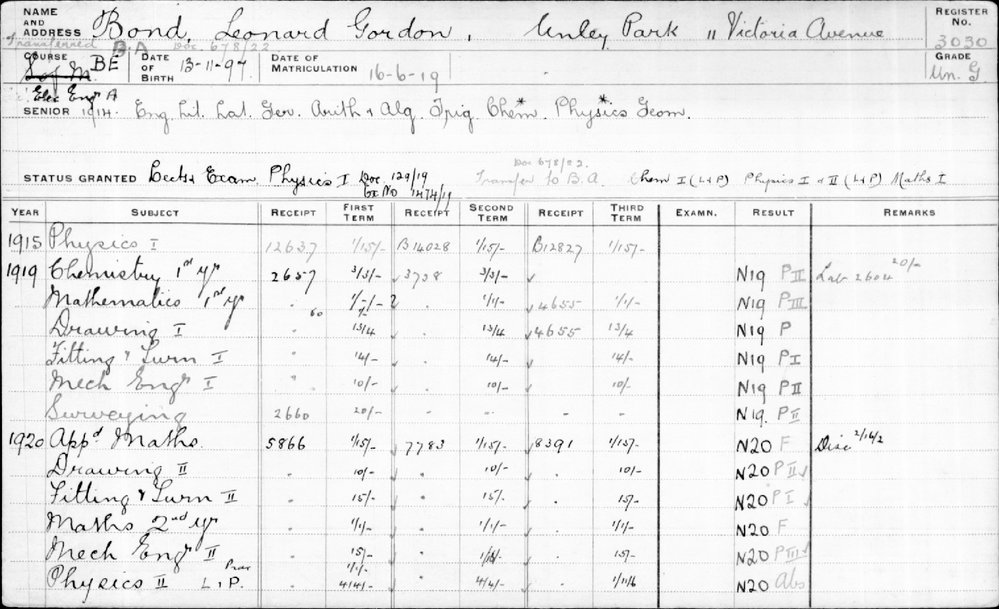 NAME AND ADDRESS Bond, Leonard Gordon, Unley Park " Victoria Avenue REGISTER No. 3030
Transferred B.A Doc 678/22
COURSE S of M. BE DATE OF BIRTH 13-11-97 DATE OF MATRICULATION 16-6-19 GRADE Un. G
Elec Engr A
SENIOR 1914. Eng. Lit. Lat. Ger. Arith & Alg. Trig. Chem*. Physics* Geom.
Doc 678/22.
STATUS GRANTED Lects & Exam. Physics I Doc 129/19 Transfer to B.A. Chem I (L&P) Physics I & II (L&P) Maths I
Ex No 1474/19
YEAR SUBJECT RECEIPT FIRST TERM RECEIPT SECOND TERM RECEIPT THIRD TERM EXAMN. RESULT REMARKS
1915 Physics I 12637 1/15/- B14028 1/15/- B12827 1/15/-
1919 Chemistry 1st yr 2657 3/3/- 3738 3/3/- N19 PII Lab 2604 20/-
Mathematics 1st yr " . 1/1/- 4655 1/1/- N19 PIII
Drawing I " 13/4 . 13/4 4655 13/4 N19 P
Fitting & Turn I " 14/- . 14/- 14/- N19 PI
Mech Engr I " 10/- . 10/- 10/- N19 PII
Surveying 2660 20/- - - - - N19. PII
1920 Appd Maths. 5866 1/15/- 7783 1/15/- 8391 1/15/- N20 F Disc 2/16/2
Drawing II . 10/- . 10/- 10/- N20 PII
Fitting & Turn II . 15/- . 15/- . 15/- N20 PI
Maths 2nd yr . 1/1/- . 1/1/- . 1/1/- N20 F
Mech Engr II . 15/- . . 15/- N20 PIII
Physics II L & P. Prac . 4/4/- . 4/4/- . 1/11/6 N20 Abs